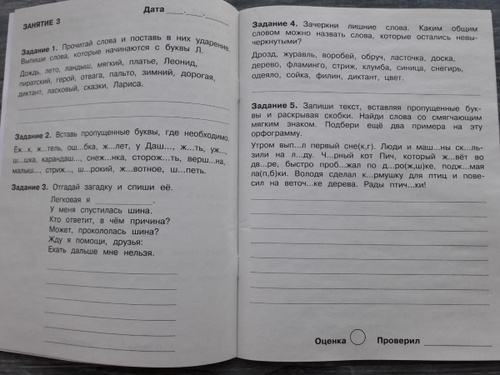 ЗАНЯТИЕ 3
Дата ___.___.___
Задание 1. Прочитай слова и поставь в них ударение.
Выпиши слова, которые начинаются с буквы Л.
Дождь, лето, ландыш, мягкий, платье, Леонид,
пиратский, герой, отвага, пальто, зимний, дорогая,
диктант, ласковый, сказки, Лариса.
Задание 2. Вставь пропущенные буквы, где необходимо.
Ёж..к, ж..тель, ош..бка, ж..лет, у Даш..., ж..ть, уж..,
ш..шка, карандаш..., снеж..нка, сторож..ть, верш..на,
малыш..., стриж..., ш..рокий, ж..вотное, ш..петь.
Задание 3. Отгадай загадку и спиши её.
Легковая я ___________.
У меня спустилась шина.
Кто ответит, в чём причина?
Может, прокололась шина?
Жду я помощи, друзья:
Ехать дальше мне нельзя.
Задание 4. Зачеркни лишние слова. Каким общим
словом можно назвать слова, которые остались невы-
черкнутыми?
Дрозд, журавль, воробей, обруч, ласточка, доска,
дерево, фламинго, стриж, клумба, синица, снегирь,
одеяло, сойка, филин, диктант, цвет.
Задание 5. Запиши текст, вставляя пропущенные бук-
вы и раскрывая скобки. Найди слова со смягчающим
мягким знаком. Подбери ещё два примера на эту
орфограмму.
Утром вып...л первый сне(к,г). Люди и маш...ны ск...ль-
зили на л...ду. Ч...рный кот Пич, который ж...вёт во
дв...ре, быстро проб...жал по д...ро(ж,ш)ке, подж...мая
ла(п,б)ки. Володя сделал к...рмушку для птиц и пове-
сил на веточ...ке дерева. Рады птич...ки!
Оценка
Проверил ___________